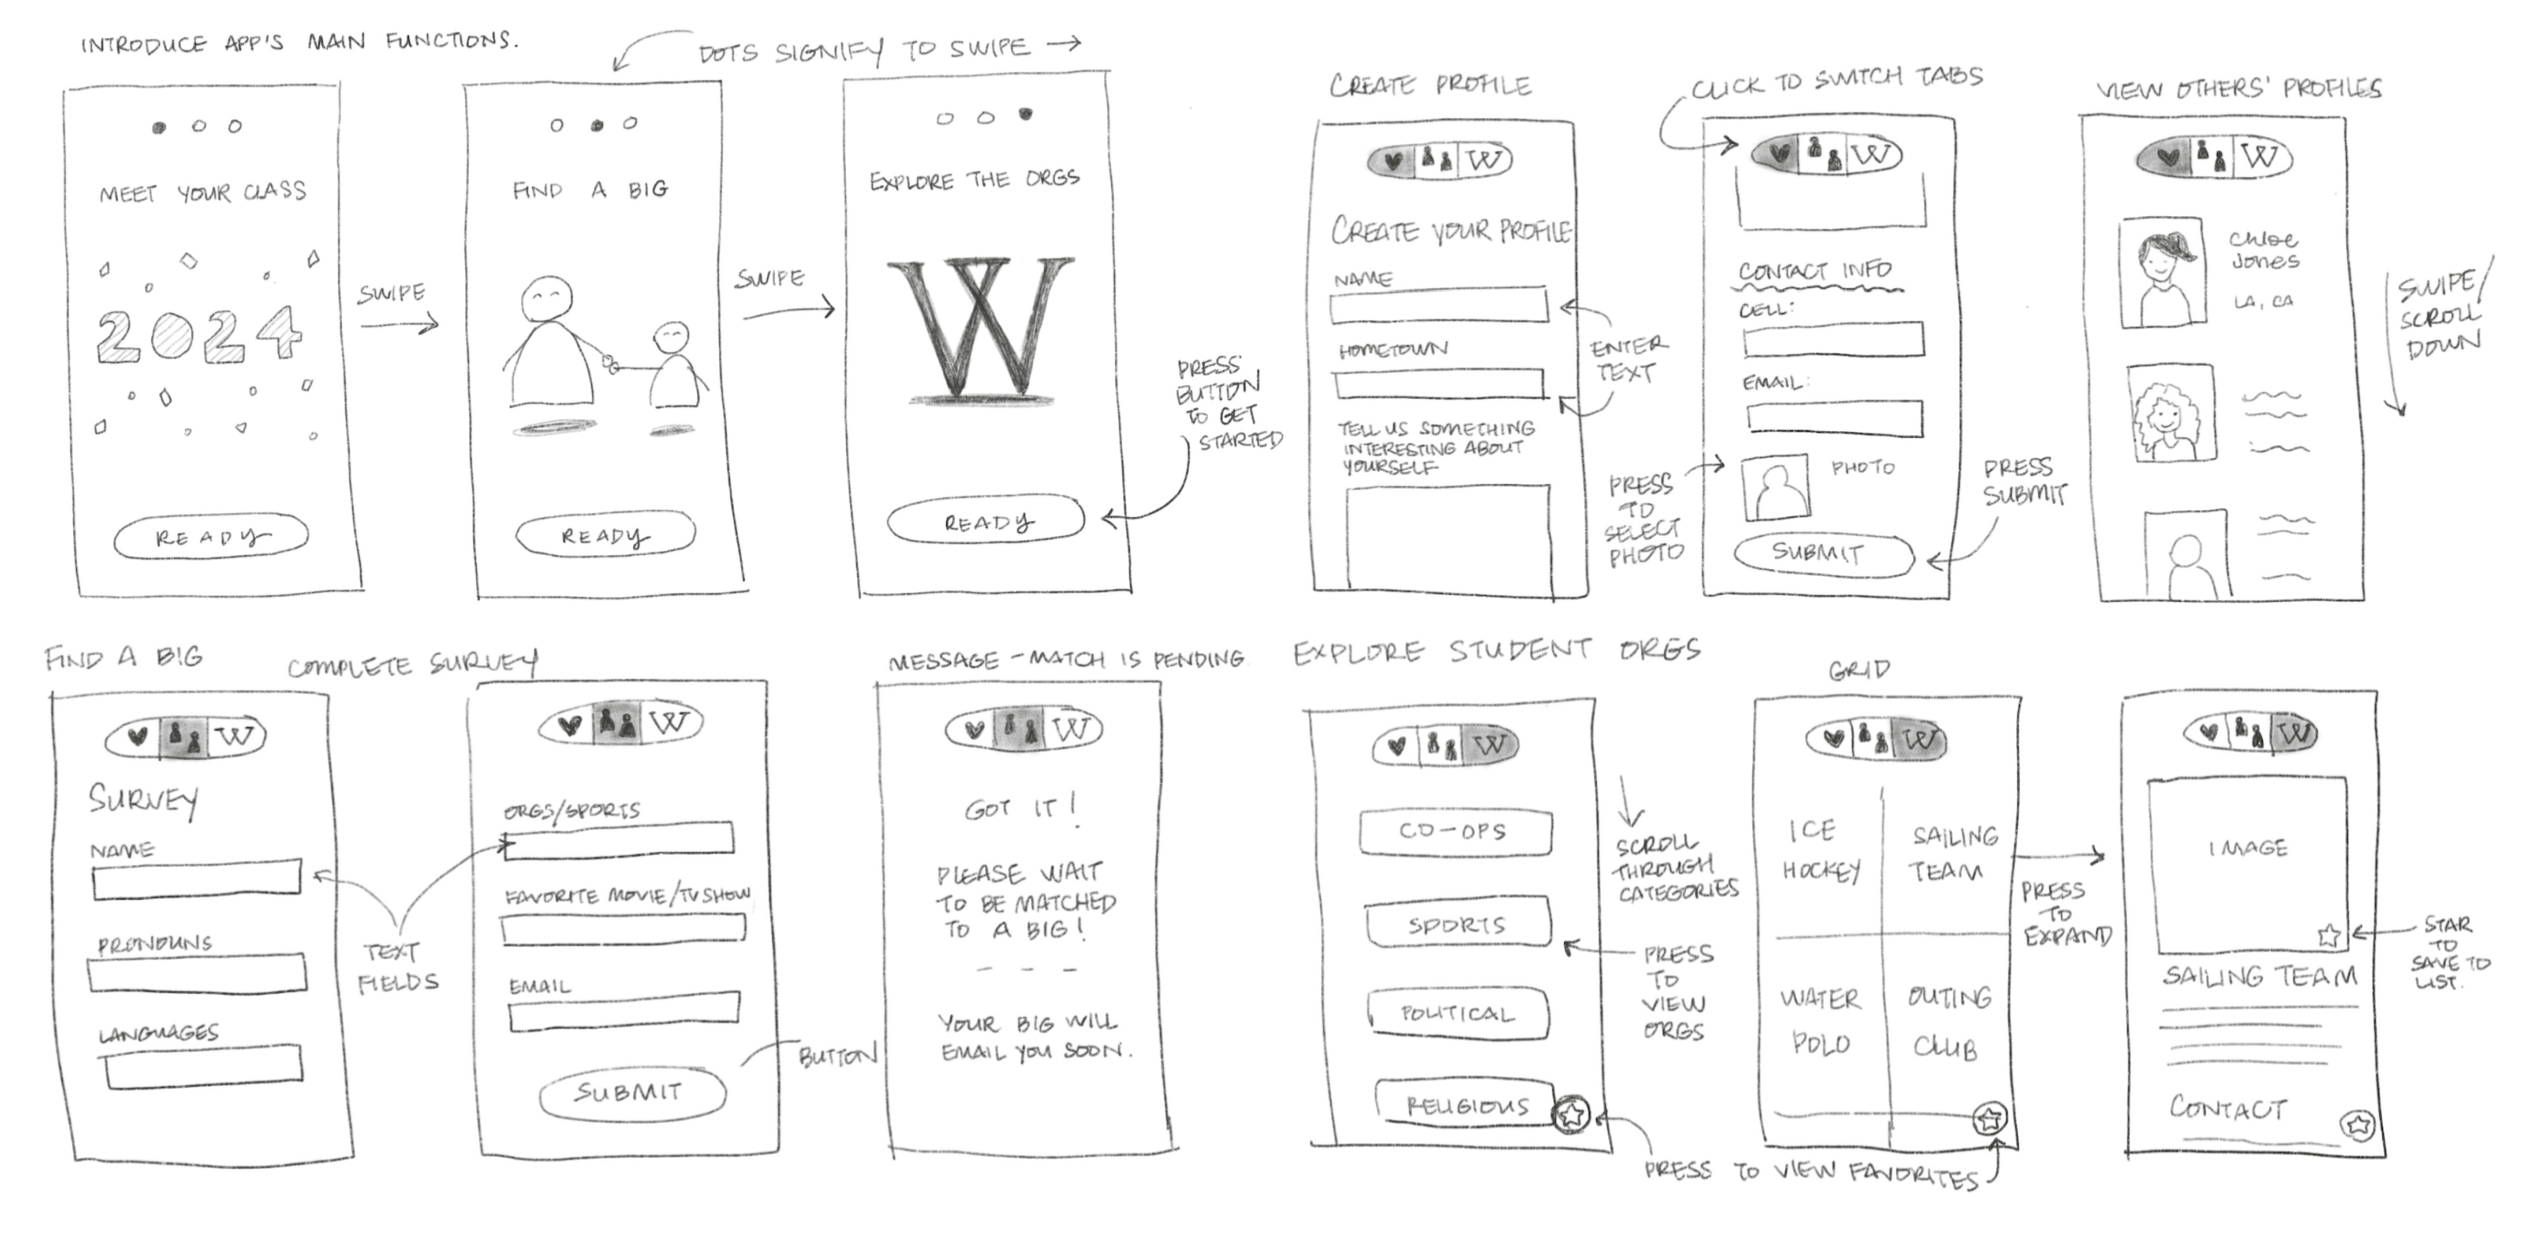 INTRODUCE APP'S MAIN FUNCTIONS.
DOTS SIGNIFY TO SWIPE →
MEET YOUR CLASS
2024
READY
SWIPE
FIND A BIG
READY
SWIPE
EXPLORE THE ORGS
W
READY
PRESS
BUTTON
TO GET
STARTED
CREATE PROFILE
W
CREATE YOUR PROFILE
NAME
HOMETOWN
TELL US SOMETHING
INTERESTING ABOUT
YOURSELF
ENTER
TEXT
CLICK TO SWITCH TABS
W
CONTACT INFO
CELL:
EMAIL:
PHOTO
SUBMIT
PRESS
TO
SELECT
PHOTO
PRESS
SUBMIT
VIEW OTHERS' PROFILES
W
Chloe
Jones
LA, CA
SWIPE/
SCROLL
DOWN
FIND A BIG
COMPLETE SURVEY
W
SURVEY
NAME
PRONOUNS
LANGUAGES
TEXT
FIELDS
W
ORGS/SPORTS
FAVORITE MOVIE/TV SHOW
EMAIL
SUBMIT
BUTTON
MESSAGE - MATCH IS PENDING
W
GOT IT!
PLEASE WAIT
TO BE MATCHED
TO A BIG!
- - -
YOUR BIG WILL
EMAIL YOU SOON.
EXPLORE STUDENT ORGS
W
CO-OPS
SPORTS
POLITICAL
RELIGIOUS
SCROLL
THROUGH
CATEGORIES
PRESS
TO
VIEW
ORGS
GRID
W
ICE
HOCKEY
SAILING
TEAM
WATER
POLO
OUTING
CLUB
PRESS TO VIEW FAVORITES
PRESS
TO
EXPAND
W
IMAGE
SAILING TEAM
CONTACT
STAR
TO
SAVE TO
LIST.